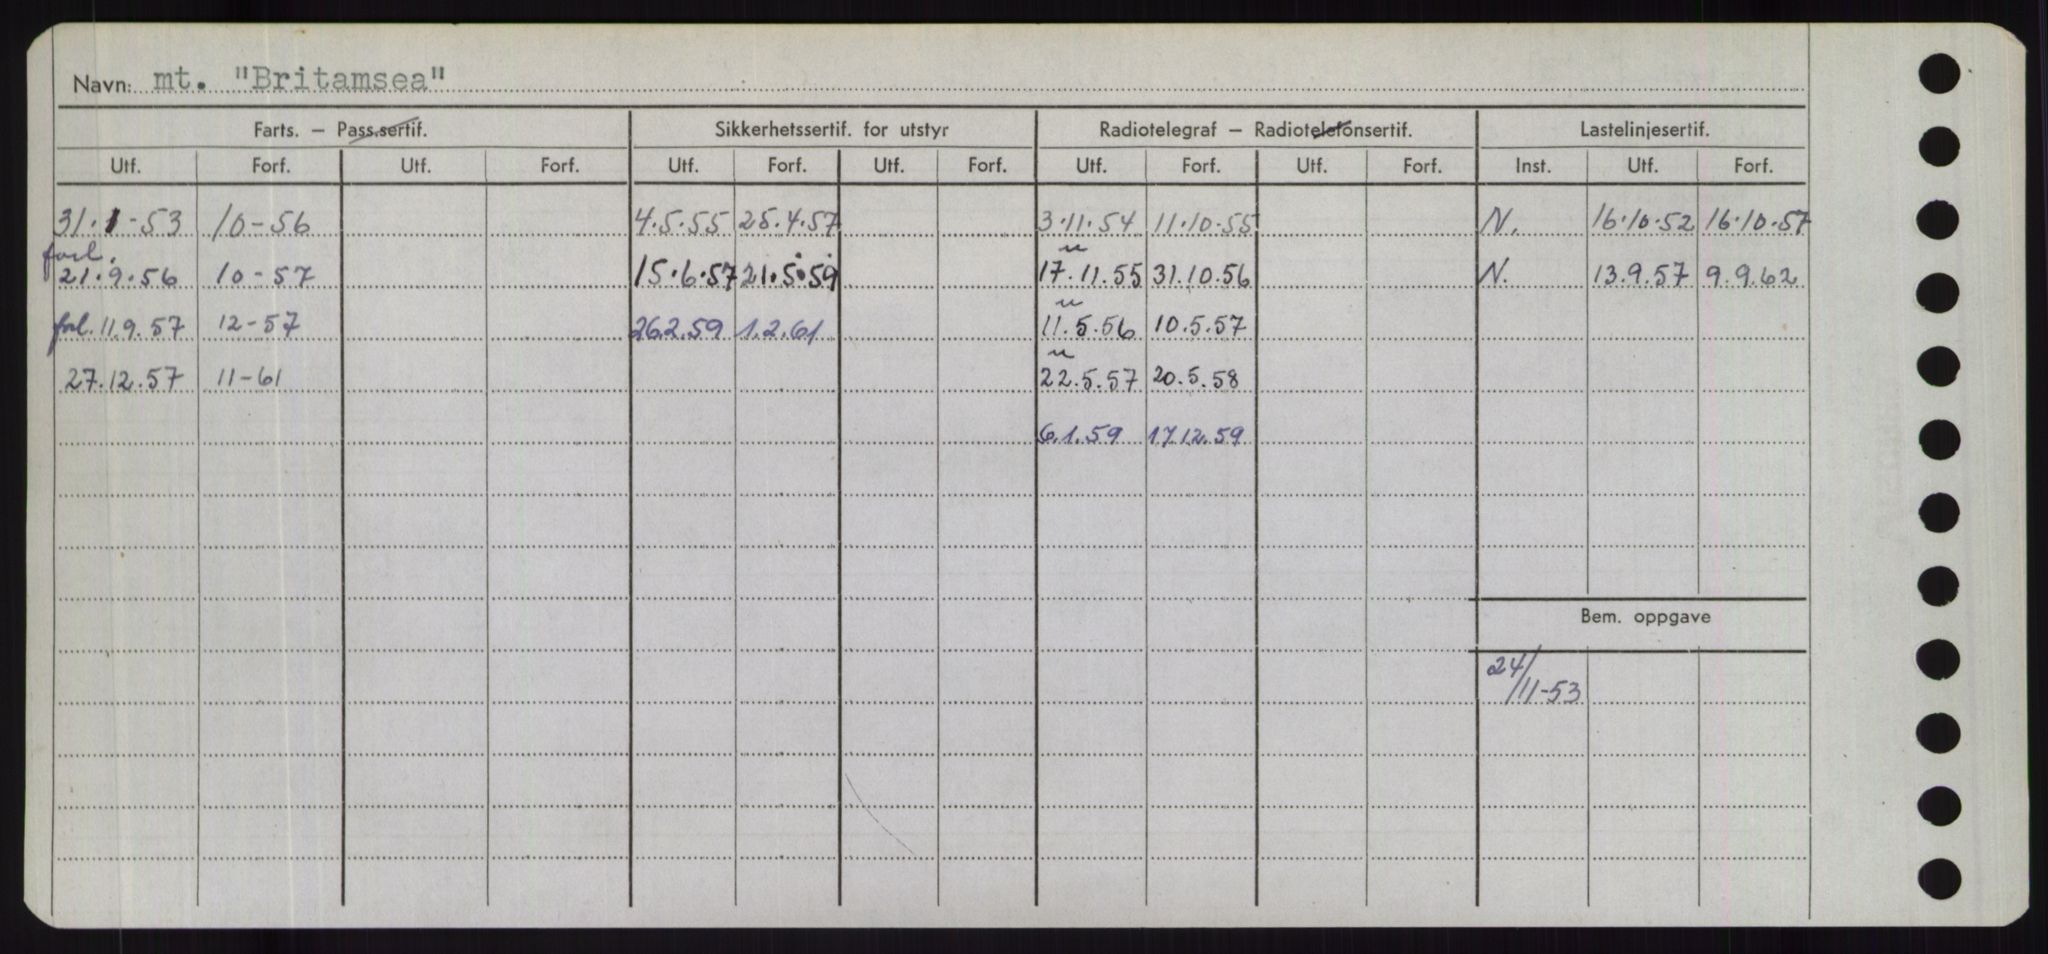 Navn: mt. "Britamsea"
Farts. – Pass.sertif. Sikkerhetssertif. for utstyr Radiotelegraf – Radiotelefonsertif. Lastelinjesertif.
Utf. Forf. Utf. Forf. Utf. Forf. Utf. Forf. Utf. Forf. Utf. Forf. Inst. Utf. Forf.
31.1-53 10-56 4.5.55 25.4.57 3.11.54 11.10.55 N. 16.10.52 16.10.57
forl. "
21.9.56 10-57 15.6.57 21.5.59 17.11.55 31.10.56 N. 13.9.57 9.9.62
"
forl. 11.9.57 12-57 26.2.59 1.2.61 11.5.56 10.5.57
"
27.12.57 11-61 22.5.57 20.5.58
6.1.59 17.12.59
Bem. oppgave
24/11-53